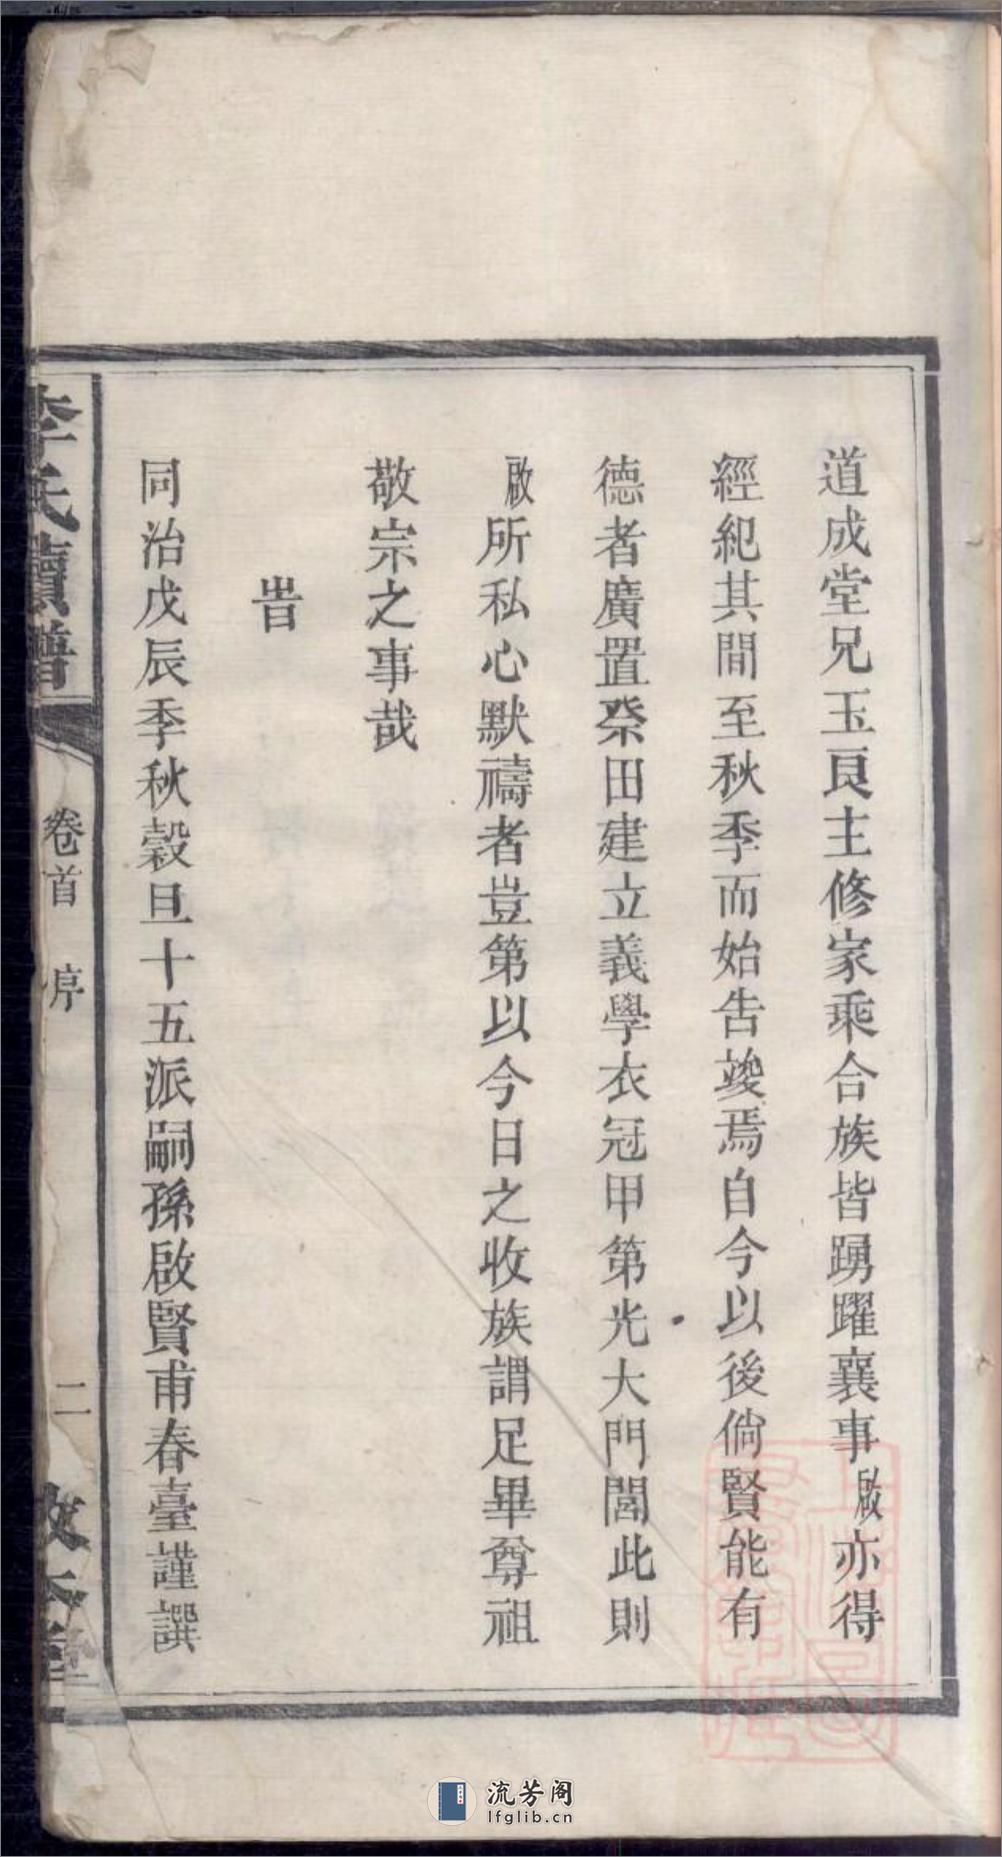 道成堂兄玉良主修家乘合族皆踴躍襄事啟亦得
經紀其間至秋季而始告竣焉自今以後倘賢能有
德者廣置祭田建立義學衣冠甲第光大門閭此則
啟所私心默禱者豈第以今日之收族謂足畢尊祖
敬宗之事哉
旹
同治戊辰季秋穀旦十五派嗣孫啟賢甫春臺謹譔
李氏續譜
卷首 序
二
流芳阁
lfglib.cn